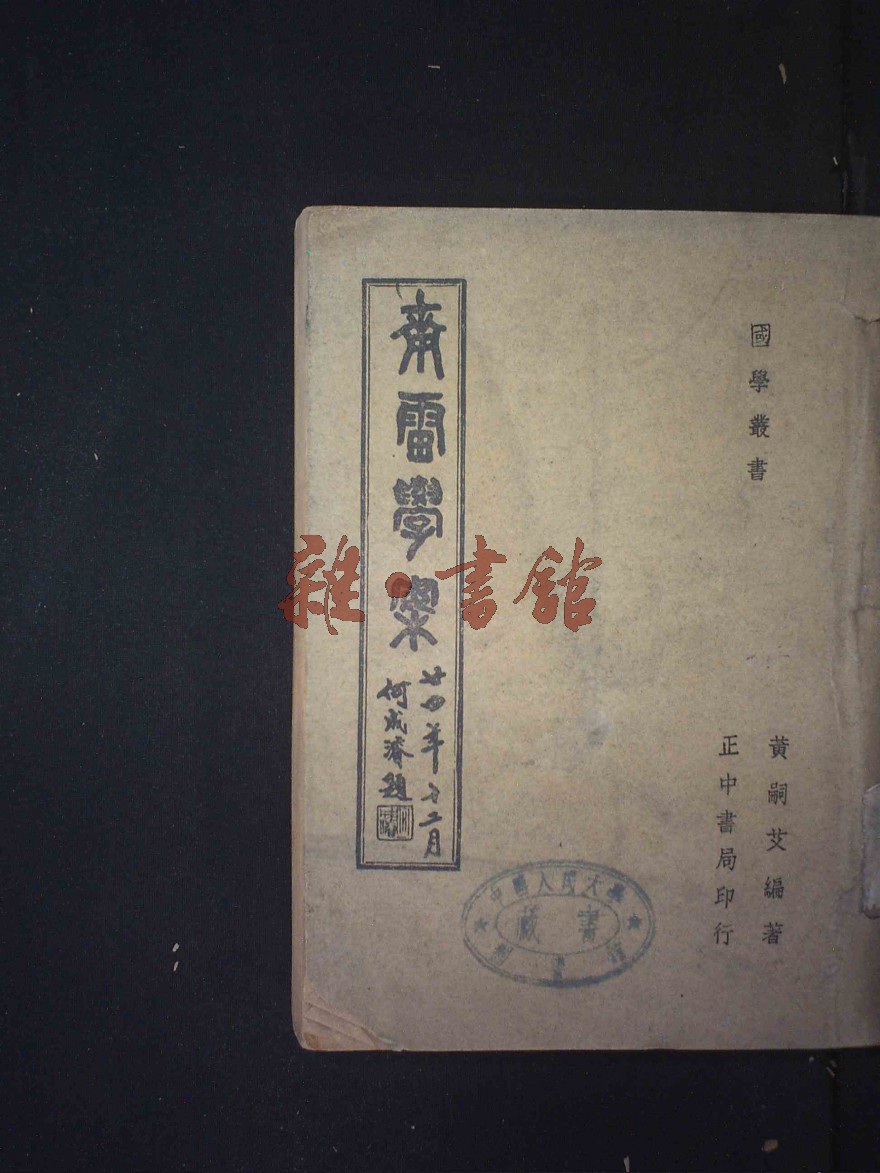 國學叢書
黃嗣艾編著
正中書局印行
南雷學案
廿四年十二月
何成濬題
雜·書館
中國人民大學
藏書
圖書館